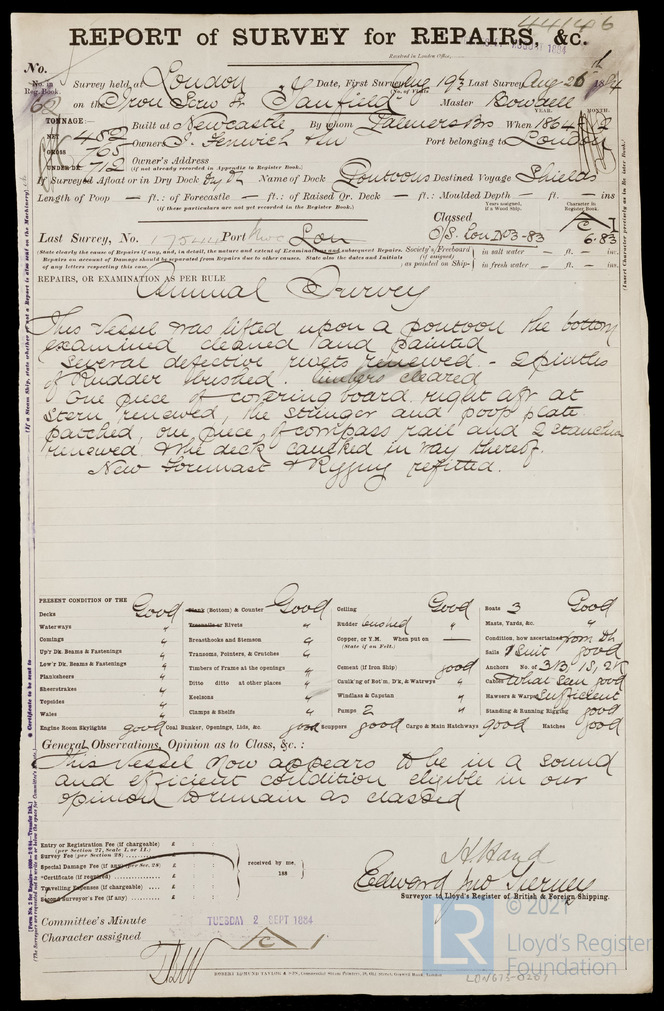 44146
REPORT of SURVEY for REPAIRS, &c.
Received in London Office,
No.
No. in Reg. Book.
Survey held at London Date, First Survey Aug 19th Last Survey Aug 26th 1884
on the Iron Screw Sr. Tanfield Master Dowdell
TONNAGE:
NET 482
GROSS 765
UNDER DK 712
Built at Newcastle By whom Palmers Bros When 1864 2
YEAR. MONTH.
Owners J. Fenwick & Son Port belonging to London
Owner's Address
(if not already recorded in Appendix to Register Book.)
If Surveyed Afloat or in Dry Dock Dry Dk Name of Dock Pontoons Destined Voyage Shields
Length of Poop — ft.: of Forecastle — ft.: of Raised Qr. Deck — ft.: Moulded Depth — ft. — ins
(if these particulars are not yet recorded in the Register Book.)
Years assigned, if a Wood Ship.
Character in Register Book.
Classed
Last Survey, No. Port Lon
S/S. Lon No3-83
C
6.83
(State clearly the cause of Repairs if any, and, in detail, the nature and extent of Examinations and subsequent Repairs.
Repairs on account of Damage should be separated from Repairs due to other causes. State also the dates and Initials
of any letters respecting this case.
Society's Freeboard (if assigned) as painted on Ship-
in salt water — ft. — ins.
in fresh water — ft. — ins.
REPAIRS, OR EXAMINATION AS PER RULE
Annual Survey
This Vessel was lifted upon a pontoon the bottom
examined cleaned and painted
Several defective rivets renewed. - 2 pintles
of Rudder bushed. Timbers cleared
One piece of covering board right aft at
Stern renewed, the stringer and poop plate
patched, one piece of compass rail and 2 stanchions
renewed & the deck caulked in way thereof.
New Foremast & Rigging refitted.
PRESENT CONDITION OF THE
Decks Good
Waterways "
Comings "
Up'r Dk. Beams & Fastenings "
Low'r Dk. Beams & Fastenings "
Planksheers "
Sheerstrakes "
Topsides "
Wales "
Engine Room Skylights good
Plank (Bottom) & Counter Good
Treenails or Rivets "
Breasthooks and Stemson "
Transoms, Pointers, & Crutches "
Timbers of Frame at the openings "
Ditto ditto at other places "
Keelsons "
Clamps & Shelfs "
Coal Bunker, Openings, Lids, &c. good
Ceiling Good
Rudder bushed "
Copper, or Y.M. When put on —
(State if on Felt.)
Cement (if Iron Ship) good
Caulk'ng of Bot'm, D'k, & Watrwys "
Windlass & Capstan "
Pumps 2 "
Scuppers good Cargo & Main Hatchways good
Boats 3 Good
Masts, Yards, &c. "
Condition, how ascertained from Dk
Sails 1 Suit good
Anchors No. of 3B, 1S, 2K
Cables What seen good
Hawsers & Warps Sufficient
Standing & Running Rigging good
Hatches good
General Observations, Opinion as to Class, &c. :
This Vessel now appears to be in a sound
and efficient condition eligible in our
opinion to remain as classed
Entry or Registration Fee (if chargeable) £
(per Section 27, Scale I. or II.)
Survey Fee (per Section 28) £
Special Damage Fee (if any) (per Sec. 28) £
*Certificate (if required) £
Travelling Expenses (if chargeable) £
Second Surveyor's Fee (if any) £
received by me,
188
H Hand
Edward Jno Tierney
Surveyor to Lloyd's Register of British & Foreign Shipping.
Committee's Minute TUESDAY 2 SEPT 1884
Character assigned C 1
ROBERT EDMUND TAYLOR & SON
© 2021
LR
Lloyd's Register
Foundation
LON673-0207